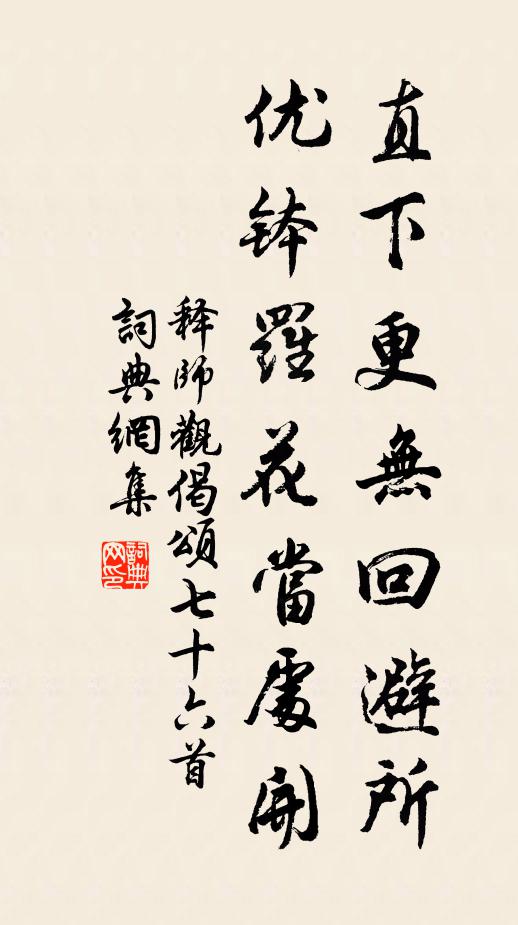 直下更無回避所
优钵羅花當處開
释師觀偈頌七十六首
詞典網集
詞典网印